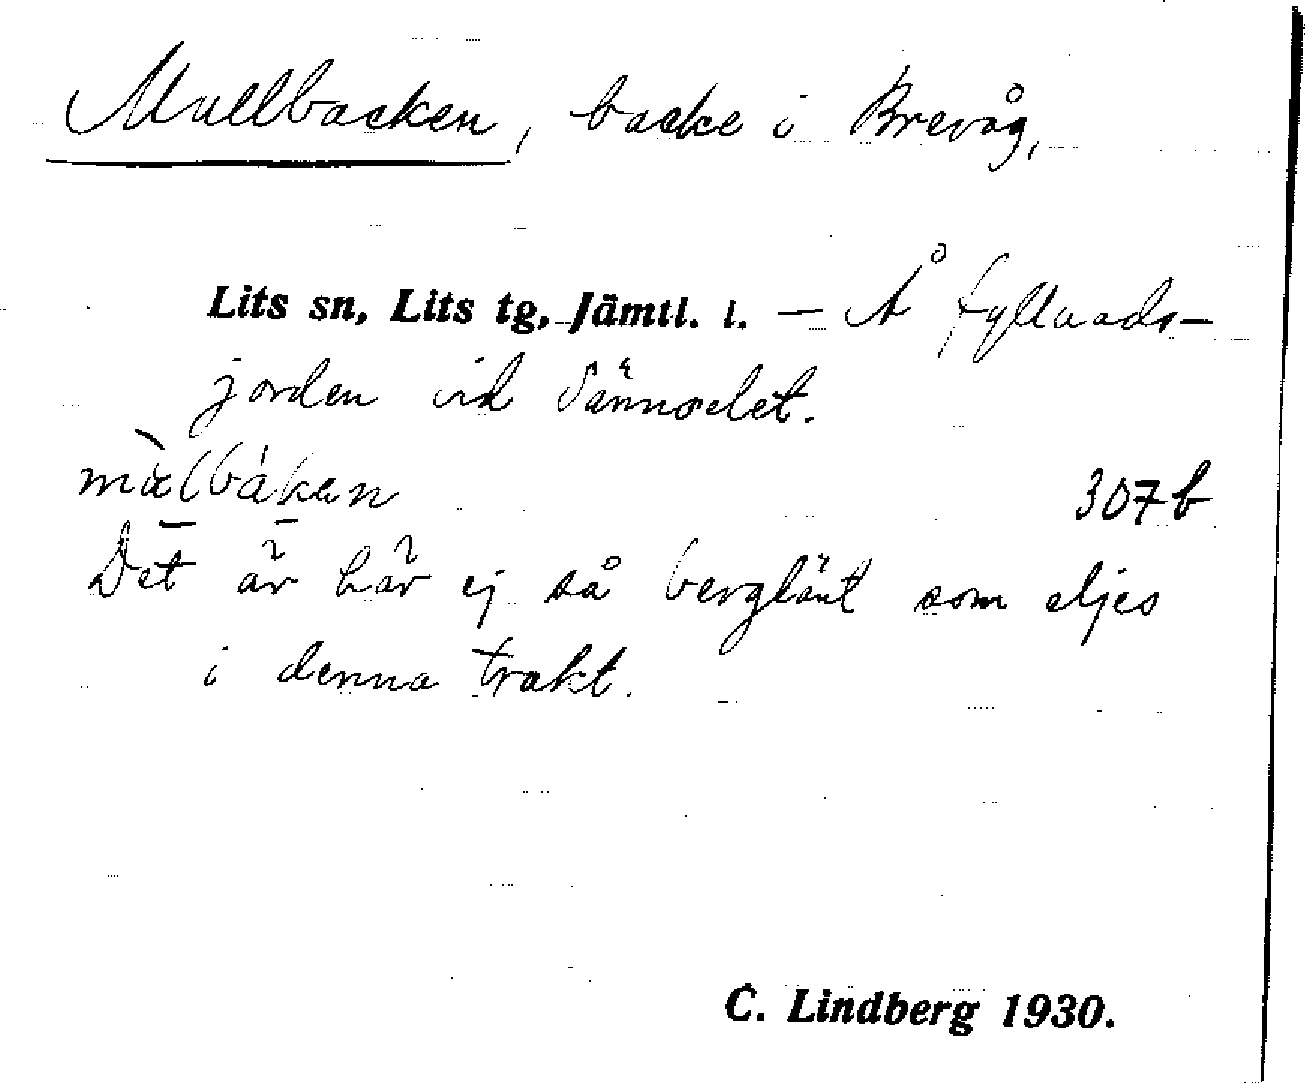 Mullbacken, backe i Brevåg,
Lits sn, Lits tg, Jämtl. l. — Å fyllnads-
jorden vid Sännselet.
målbàken 307b
Det är här ej så berglänt som eljes
i denna trakt.
C. Lindberg 1930.